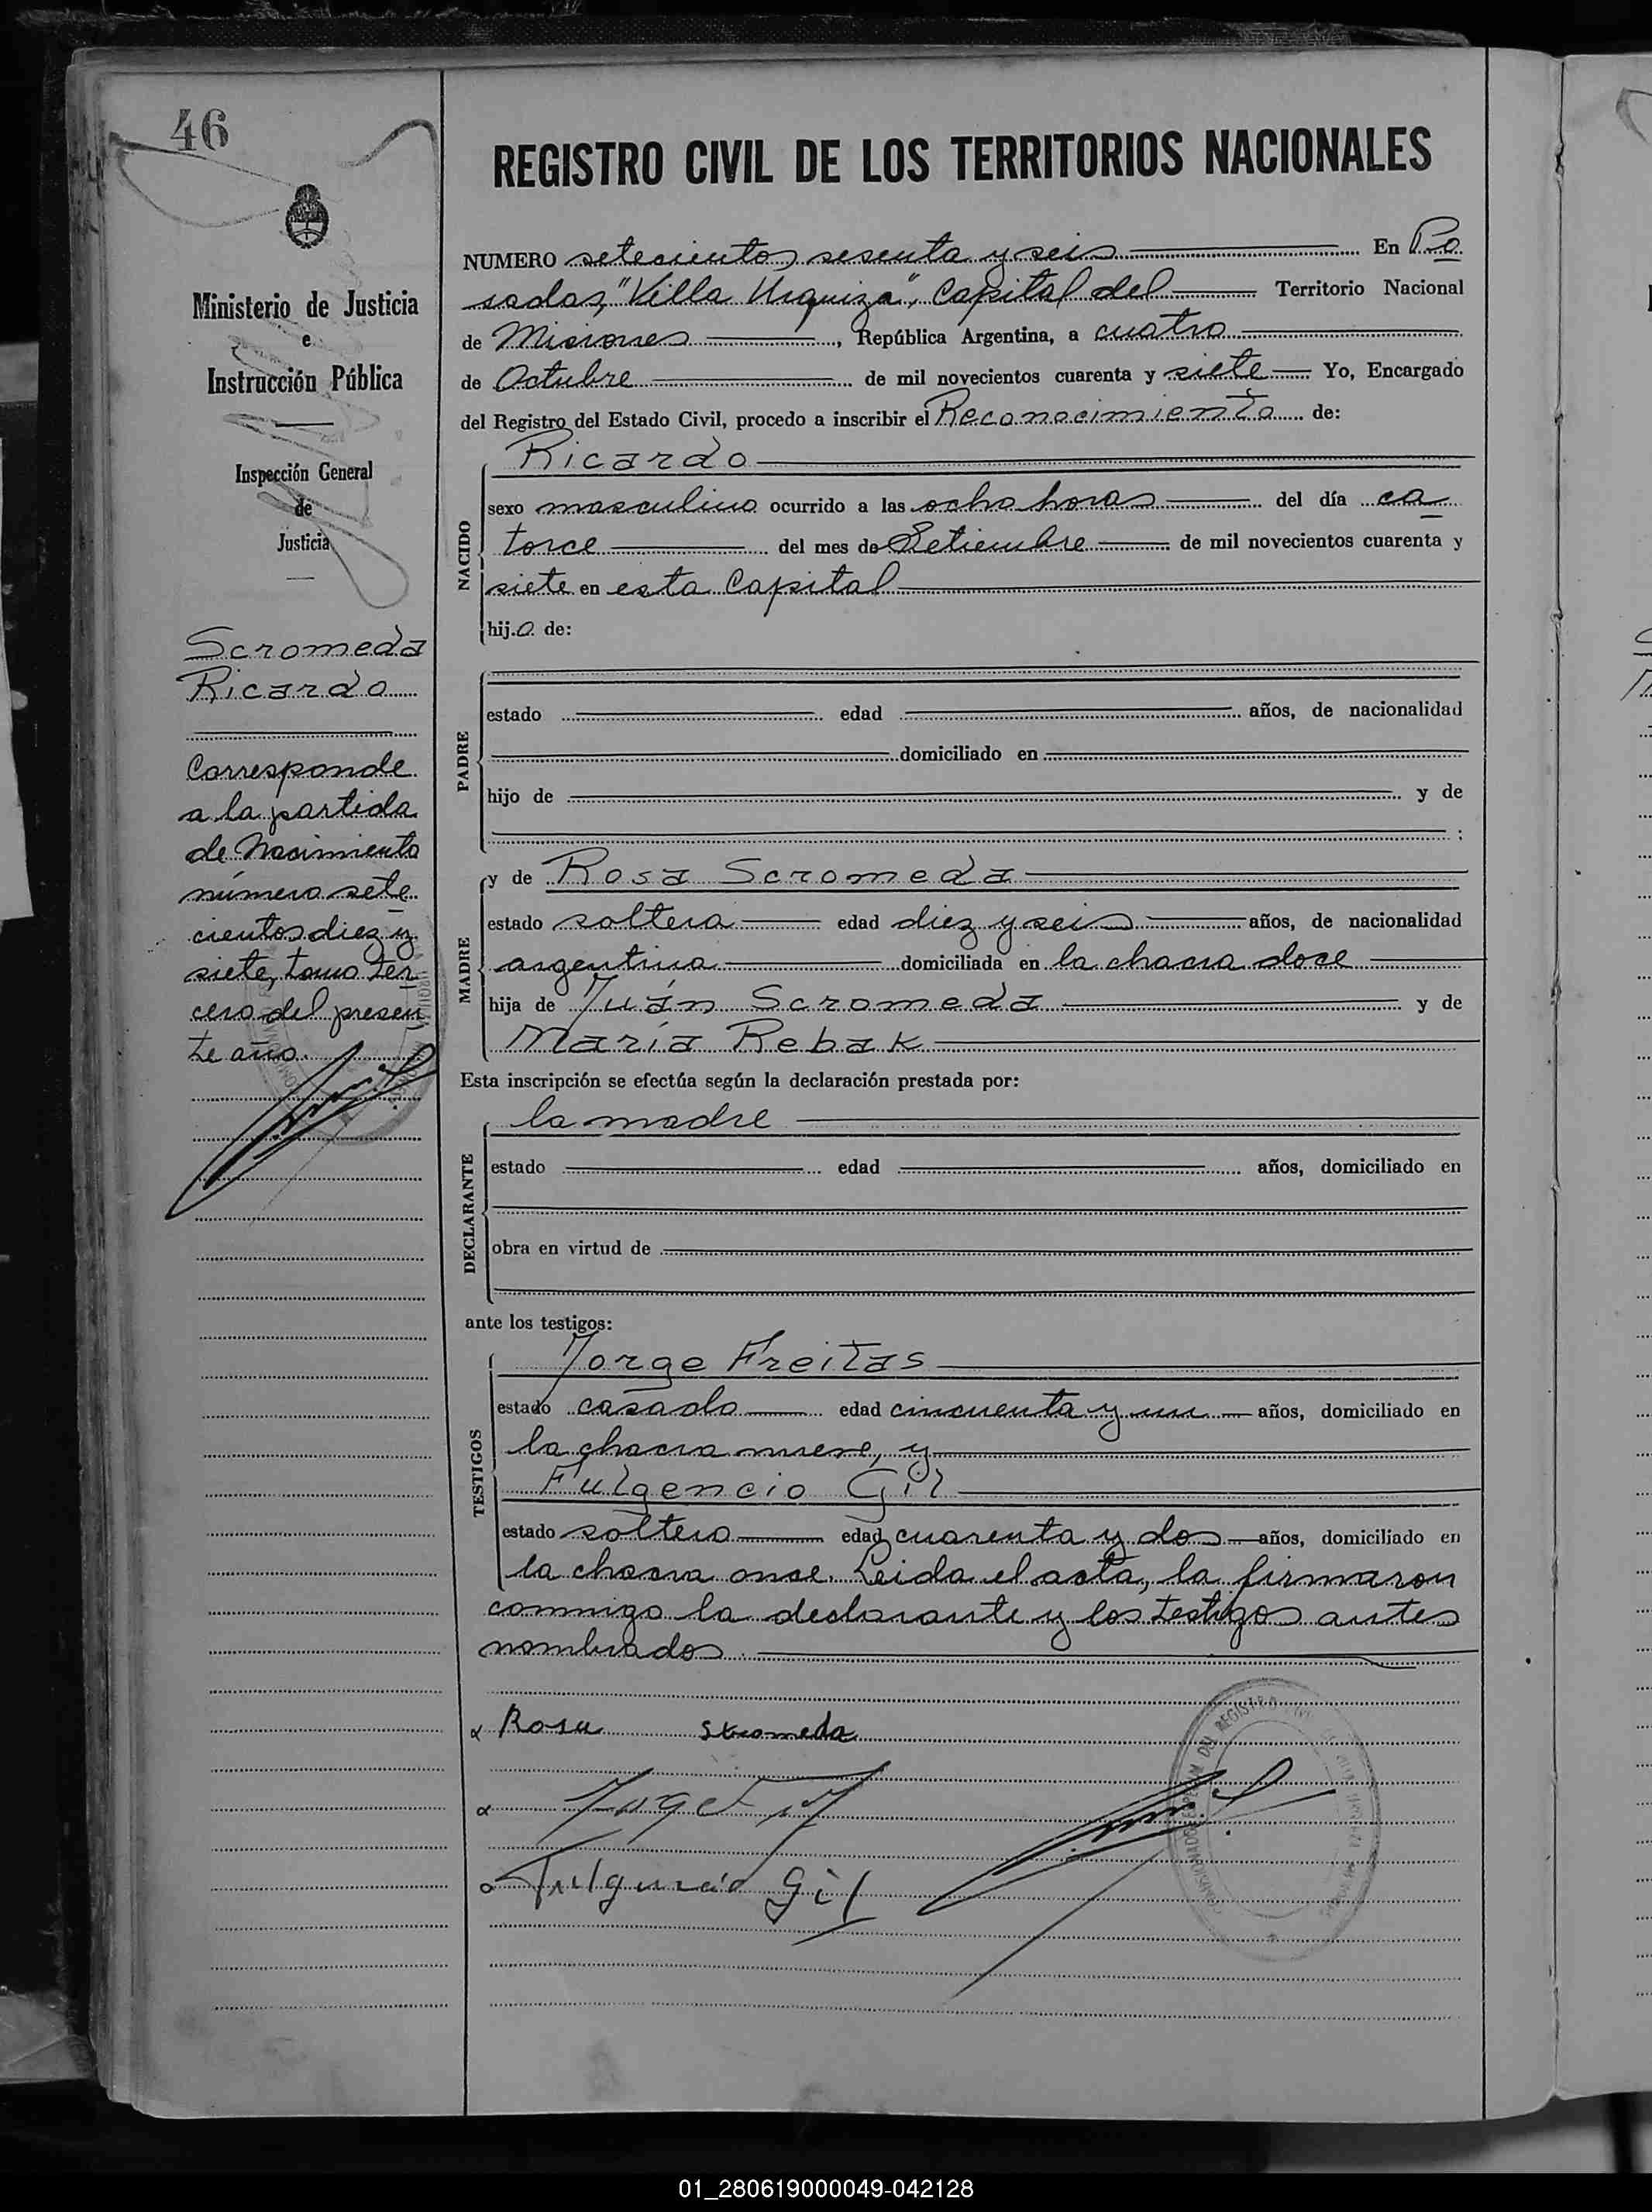 46
Ministerio de Justicia
e
Instrucción Pública
Inspección General
de
Justicia
Scromeda
Ricardo
Corresponde
a la partida
de Nacimiento
número sete
cientos diez y
siete, tomo ter
cero del presen
te año.
REGISTRO CIVIL DE LOS TERRITORIOS NACIONALES
NUMERO setecientos sesenta y seis En Po
sadas, "Villa Urquiza", Capital del Territorio Nacional
de Misiones, República Argentina, a cuatro
de Octubre de mil novecientos cuarenta y siete Yo, Encargado
del Registro del Estado Civil, procedo a inscribir el Reconocimiento de:
Ricardo
NACIDO
sexo masculino ocurrido a las ocho horas del día ca
torce del mes de Setiembre de mil novecientos cuarenta y
siete en esta Capital
hijo de:
PADRE
estado edad años, de nacionalidad
domiciliado en
hijo de y de
;
MADRE
y de Rosa Scromeda
estado soltera edad diez y seis años, de nacionalidad
argentina domiciliada en la chacra doce
hija de Juán Scromeda y de
María Rebak
Esta inscripción se efectúa según la declaración prestada por:
DECLARANTE
la madre
estado edad años, domiciliado en
obra en virtud de
ante los testigos:
TESTIGOS
Jorge Freitas
estado casado edad cincuenta y un años, domiciliado en
la chacra nueve, y
Fulgencio Gil
estado soltero edad cuarenta y dos años, domiciliado en
la chacra once. Leida el acta, la firmaron
conmigo la declarante y los testigos antes
nombrados.
Rosa Scromeda
Fulgencio Gil
01_280619000049-042128